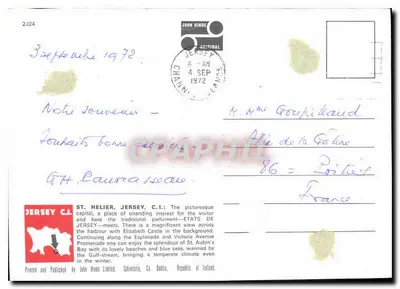 2J24
JOHN HINDE
ORIGINAL
JERSEY
6 - AM
4 SEP
1972
CHANNEL ISLANDS
3 septembre 1972
Notre souvenir -
Souhaits bonne
M. Mme
de la
86 = Poitiers
France
JERSEY C.I.
ST. HELIER, JERSEY, C.I.: The picturesque
capital, a place of unending interest for the visitor
and here the traditional parliament—ETATS DE
JERSEY—meets. There is a magnificent view across
the harbour with Elizabeth Castle in the background.
Continuing along the Esplanade and Victoria Avenue
Promenade one can enjoy the splendour of St. Aubin's
Bay with its lovely beaches and blue seas, warmed by
the Gulf-stream, bringing a temperate climate even
in the winter.
Printed and Published by John Hinde Limited, Cabinteely, Co. Dublin, Republic of Ireland.